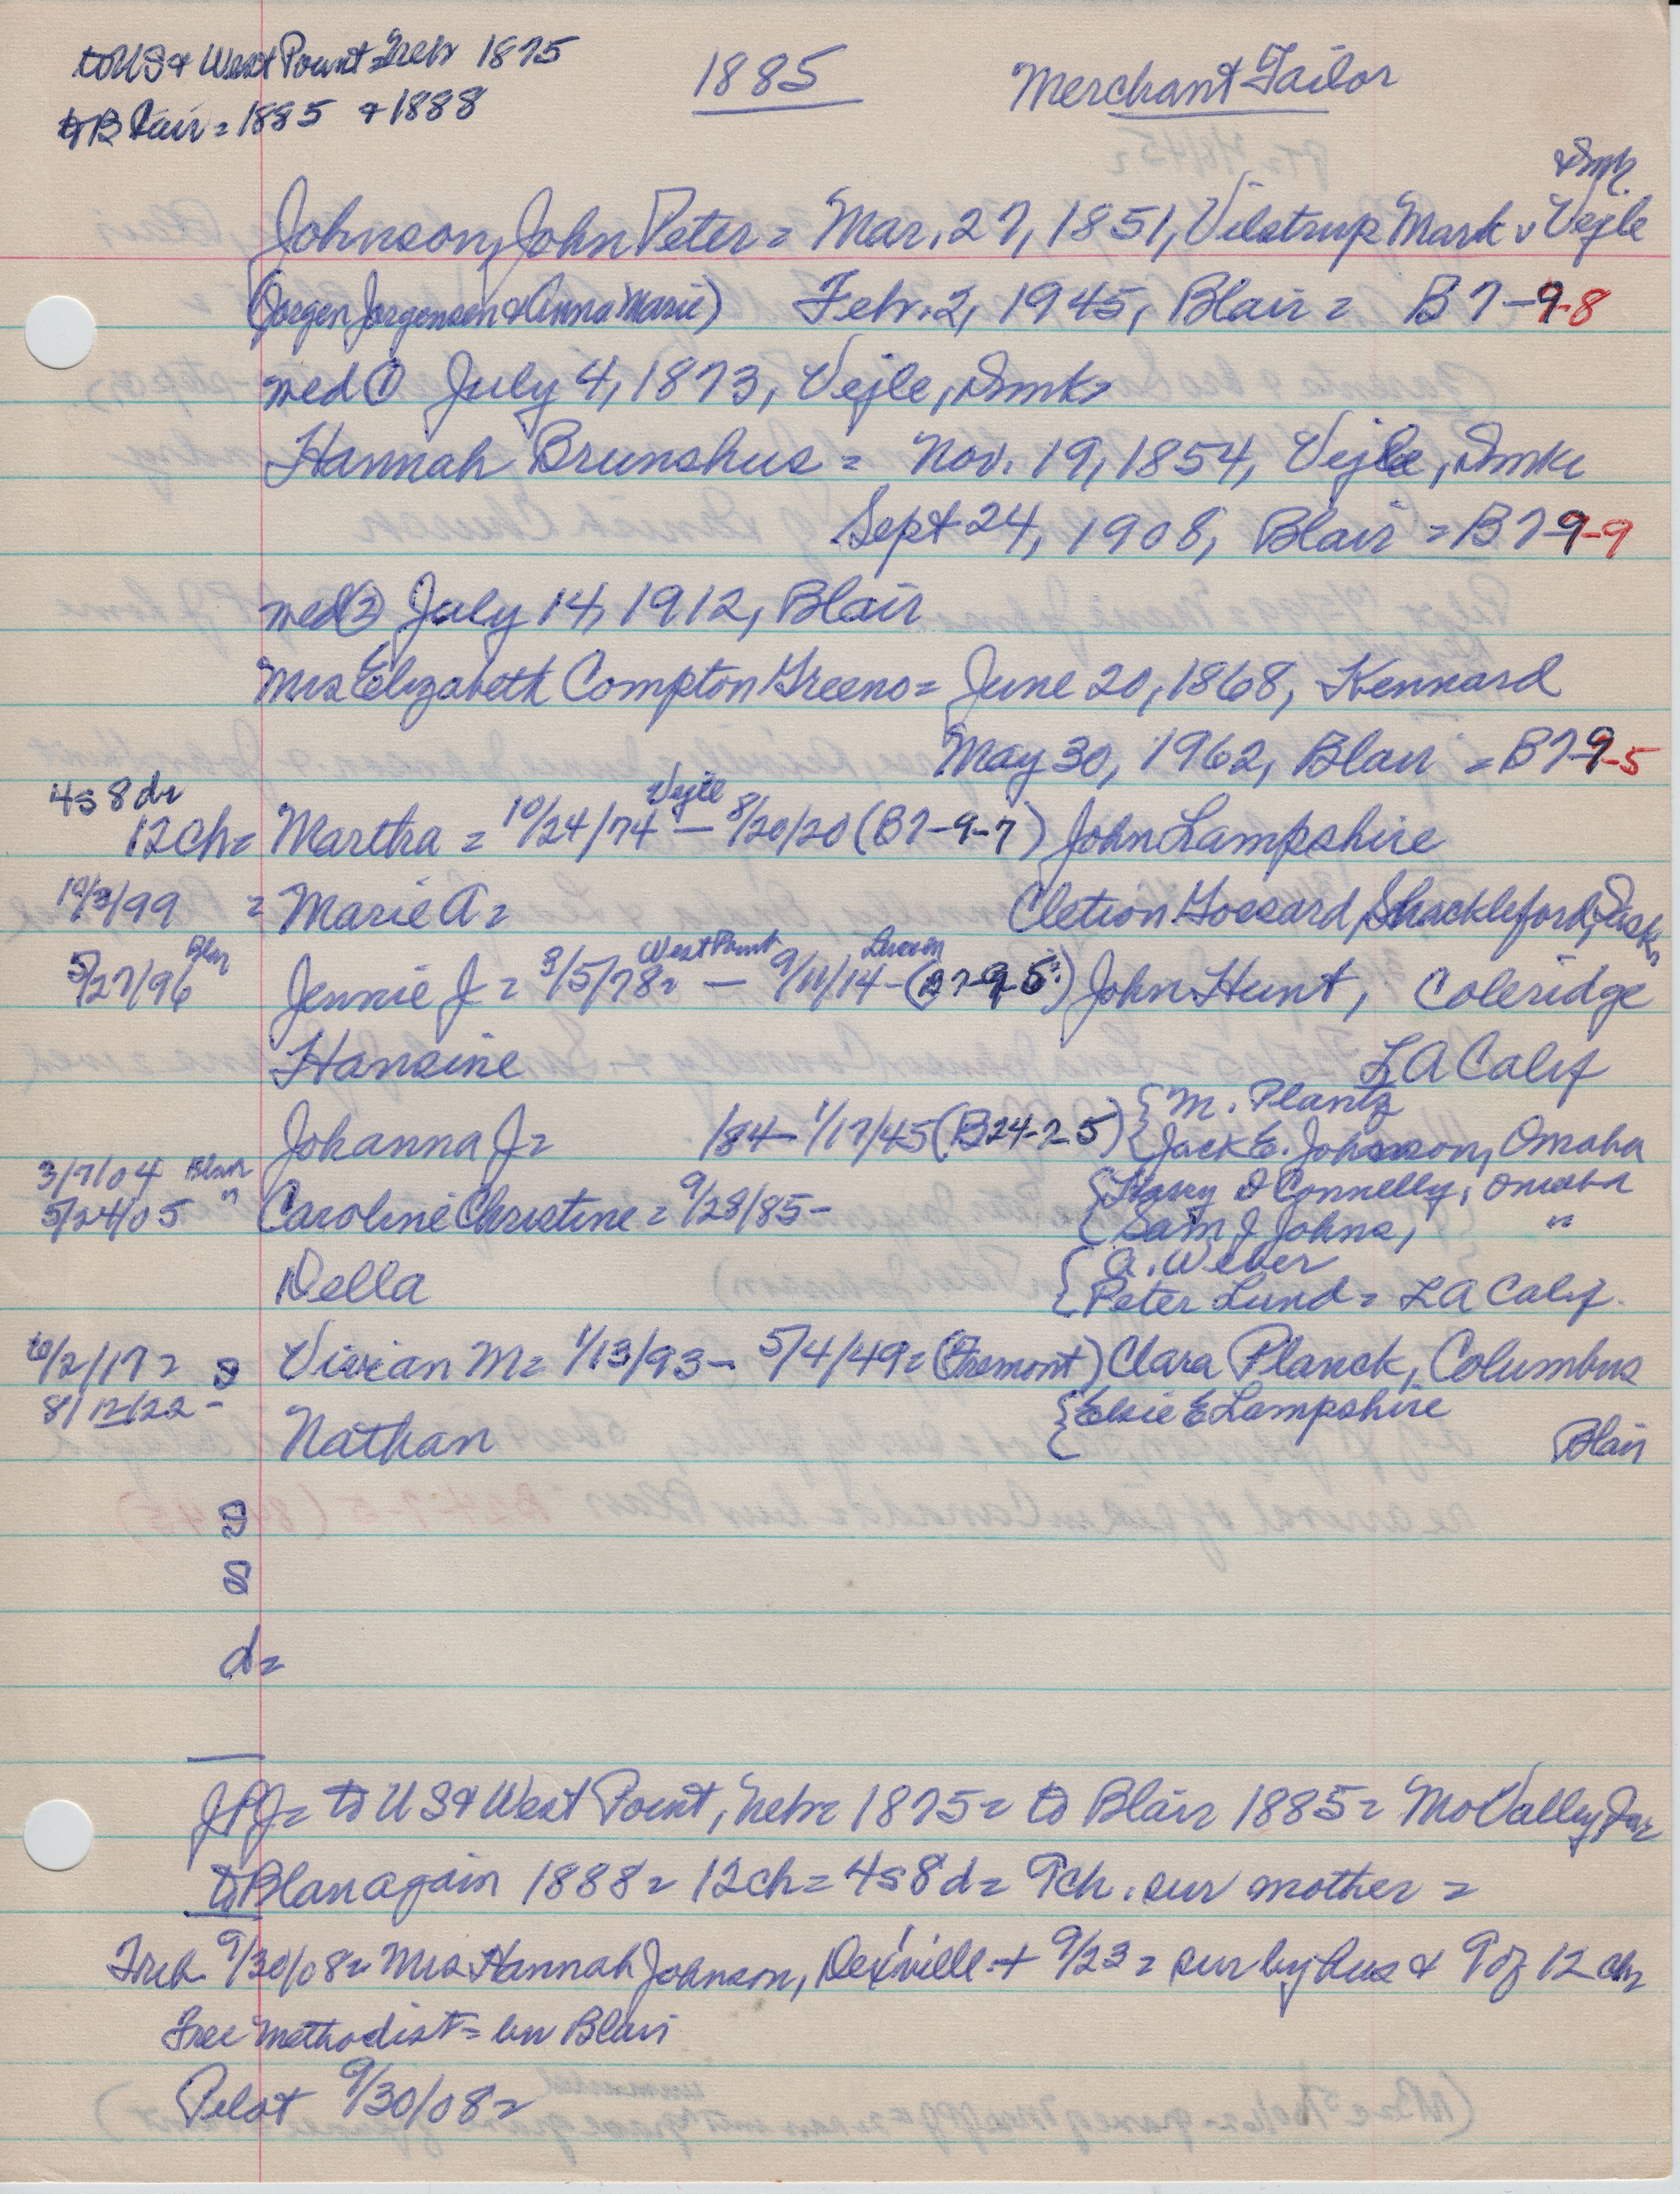 to US & West Point Nebr 1875
to Blair = 1885 & 1888
1885
Merchant Tailor
Dmk.
Johnson, John Peter = Mar. 27, 1851, Vilstrup Mark v Vejle
(Jorgen Jorgensen & Anna Marie) Febr. 2, 1945, Blair = B7-9-8
med ① July 4, 1873, Vejle, Dmk =
Hannah Brunshus = Nov. 19, 1854, Vejle, Dmk
Sept 24, 1908, Blair = B7-9-9
med ② July 14, 1912, Blair
Mrs Elizabeth Compton Greeno = June 20, 1868, Kennard
May 30, 1962, Blair = B7-9-5
4s 8dr
12ch = Martha = 10/24/74 Vejle — 8/20/20 (B7-9-7) John Lampshire
10/3/99 = Marie A = Cletion Gossard, Shackleford, Sask
5/27/96 Blair Jennie J = 3/5/78 = West Point — 9/11/14 - (B7-9-5) John Hunt, Coleridge
Hansine LA Calif
{M. Plantz
Johanna J = /84 - 1/17/45 (B24-2-5) {Jack E. Johnson, Omaha
3/7/04 Blair {Harry D Connelly, Omaha
5/24/05 " Caroline Christine = 9/28/85 - {Sam J Johns, "
{A. Weber
Della {Peter Lund = LA Calif.
10/2/17 = s Vivian M = 1/13/93 - 5/4/49 = (Fremont) Clara Planck, Columbus
8/12/22 - {Elsie E Lampshire
Nathan Blair
s
s
d =
JPJ = to US & West Point, Nebr 1875 = to Blair 1885 = Mo Valley, Ia =
to Blair again 1888 = 12ch = 4s 8d = 9ch. sur mother =
Trib. 9/30/08 = Mrs Hannah Johnson, Dex'ville + 9/23 = sur by hus & 9 of 12 ch
Free Methodist = bur Blair
Pilot 9/30/08 =